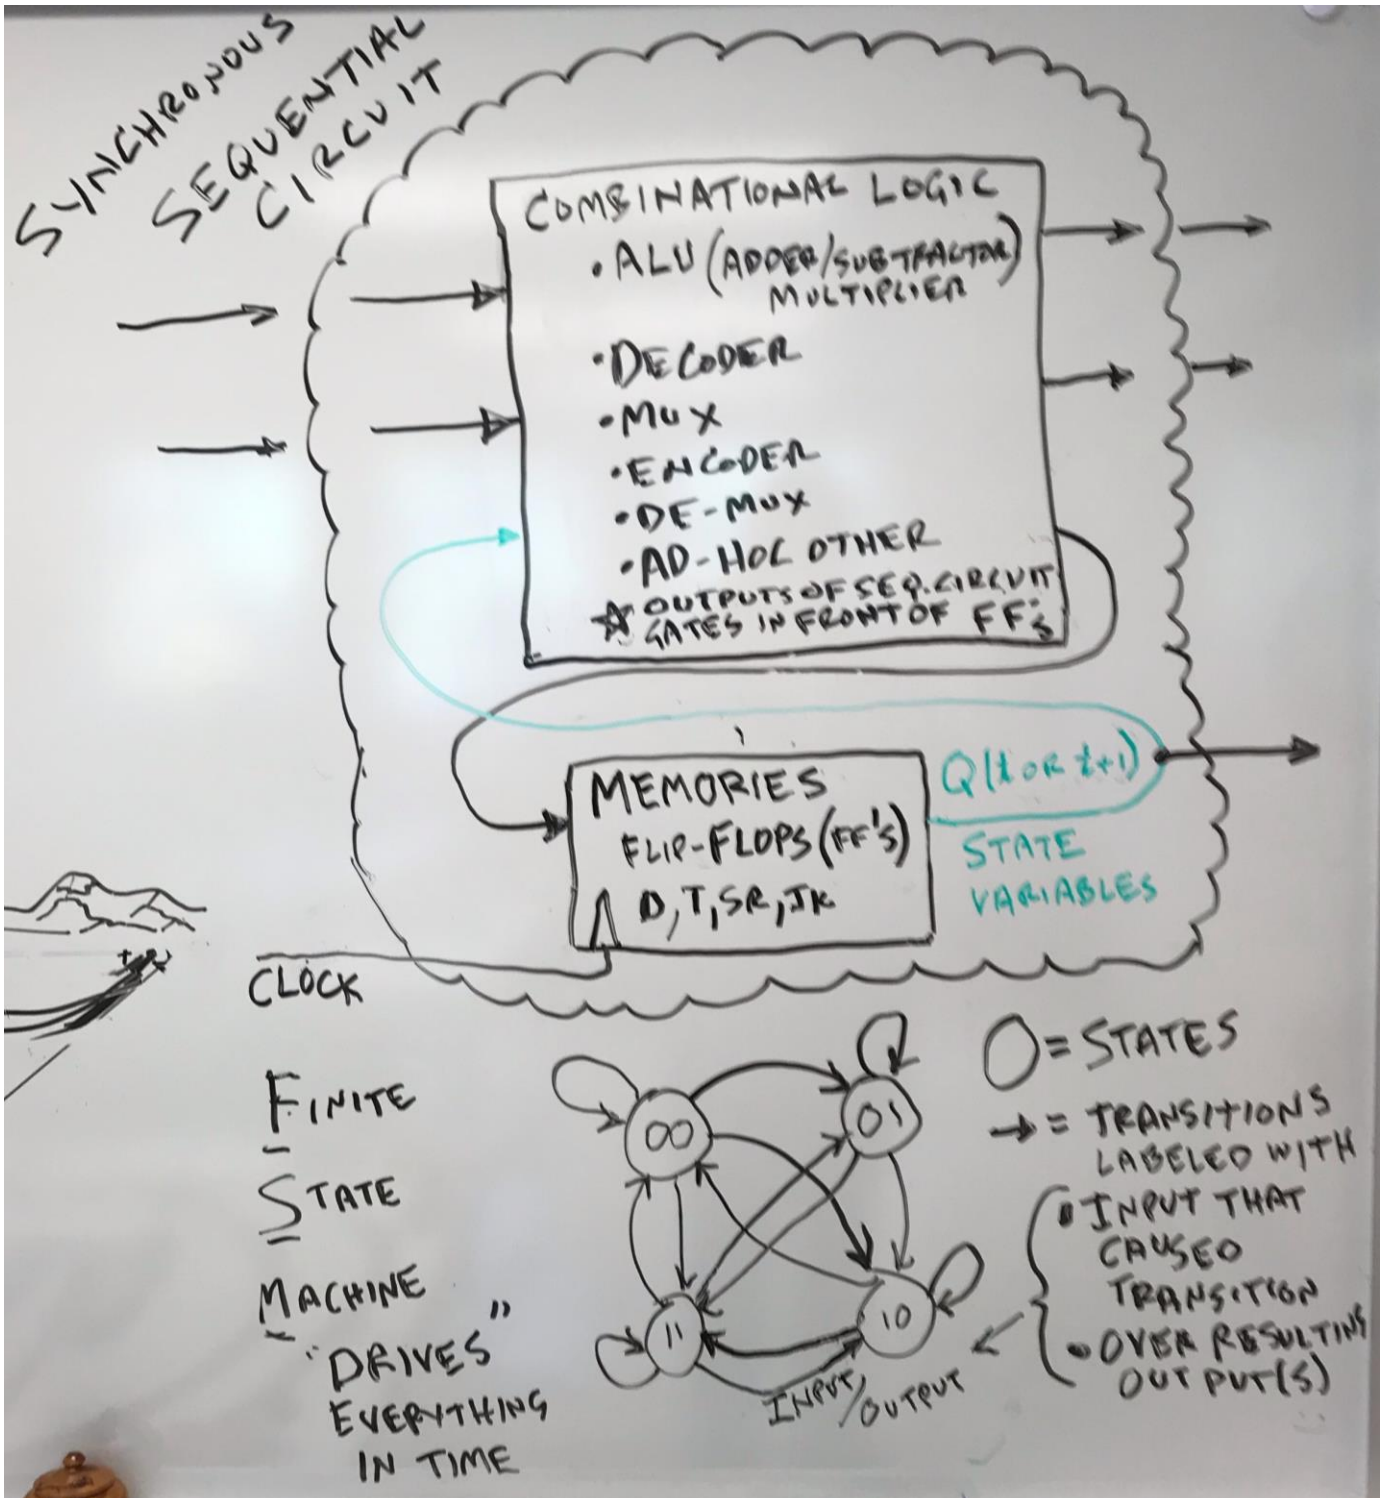 SYNCHRONOUS
SEQUENTIAL
CIRCUIT
COMBINATIONAL LOGIC
• ALU (ADDER/SUBTRACTOR)
MULTIPLIER
• DECODER
• MUX
• ENCODER
• DE-MUX
• AD-HOC OTHER
☆ OUTPUTS OF SEQ. CIRCUIT
GATES IN FRONT OF FF's
MEMORIES
FLIP-FLOPS (FF'S)
D, T, SR, JK
Q(t OR t+1)
STATE
VARIABLES
CLOCK
FINITE
STATE
MACHINE
"DRIVES"
EVERYTHING
IN TIME
00
01
11
10
INPUT/OUTPUT
O = STATES
→ = TRANSITIONS
LABELED WITH
• INPUT THAT
CAUSED
TRANSITION
• OVER RESULTING
OUTPUT(S)